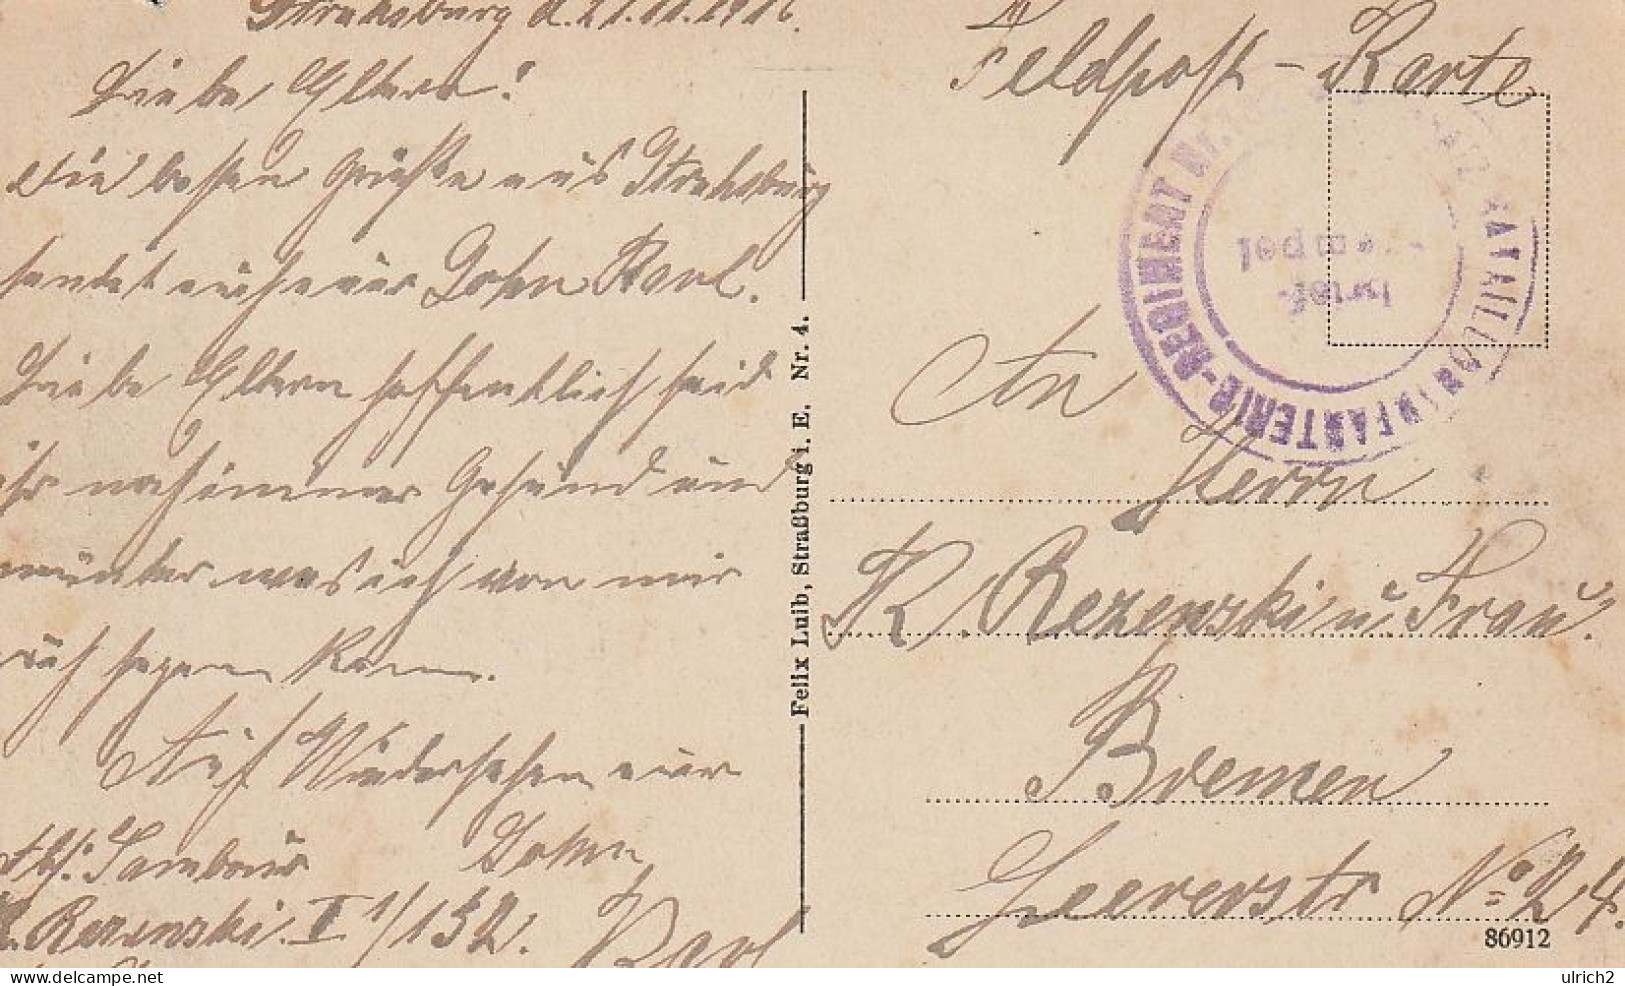 Straßburg d. 21.11.1916.
Liebe Eltern!
Die besten Grüße aus Straßburg
sendet euch euer Sohn Karl.
Liebe Eltern hoffentlich seid
ihr noch immer Gesund und
munter was ich von mir
auch sagen kann.
Auf Wiedersehen euer
Sohn
Karl
Abs: Tambour
K. Rezenski. I 1/132.
Felix Luib, Straßburg i. E. Nr. 4.
Feldpost-Karte
BATAILLON INFANTERIE-REGIMENT Nr.
Brief-
stempel
An
Herrn
K. Rezenski u. Frau.
Bremen
Leererstr No 24.
86912
ulrich2